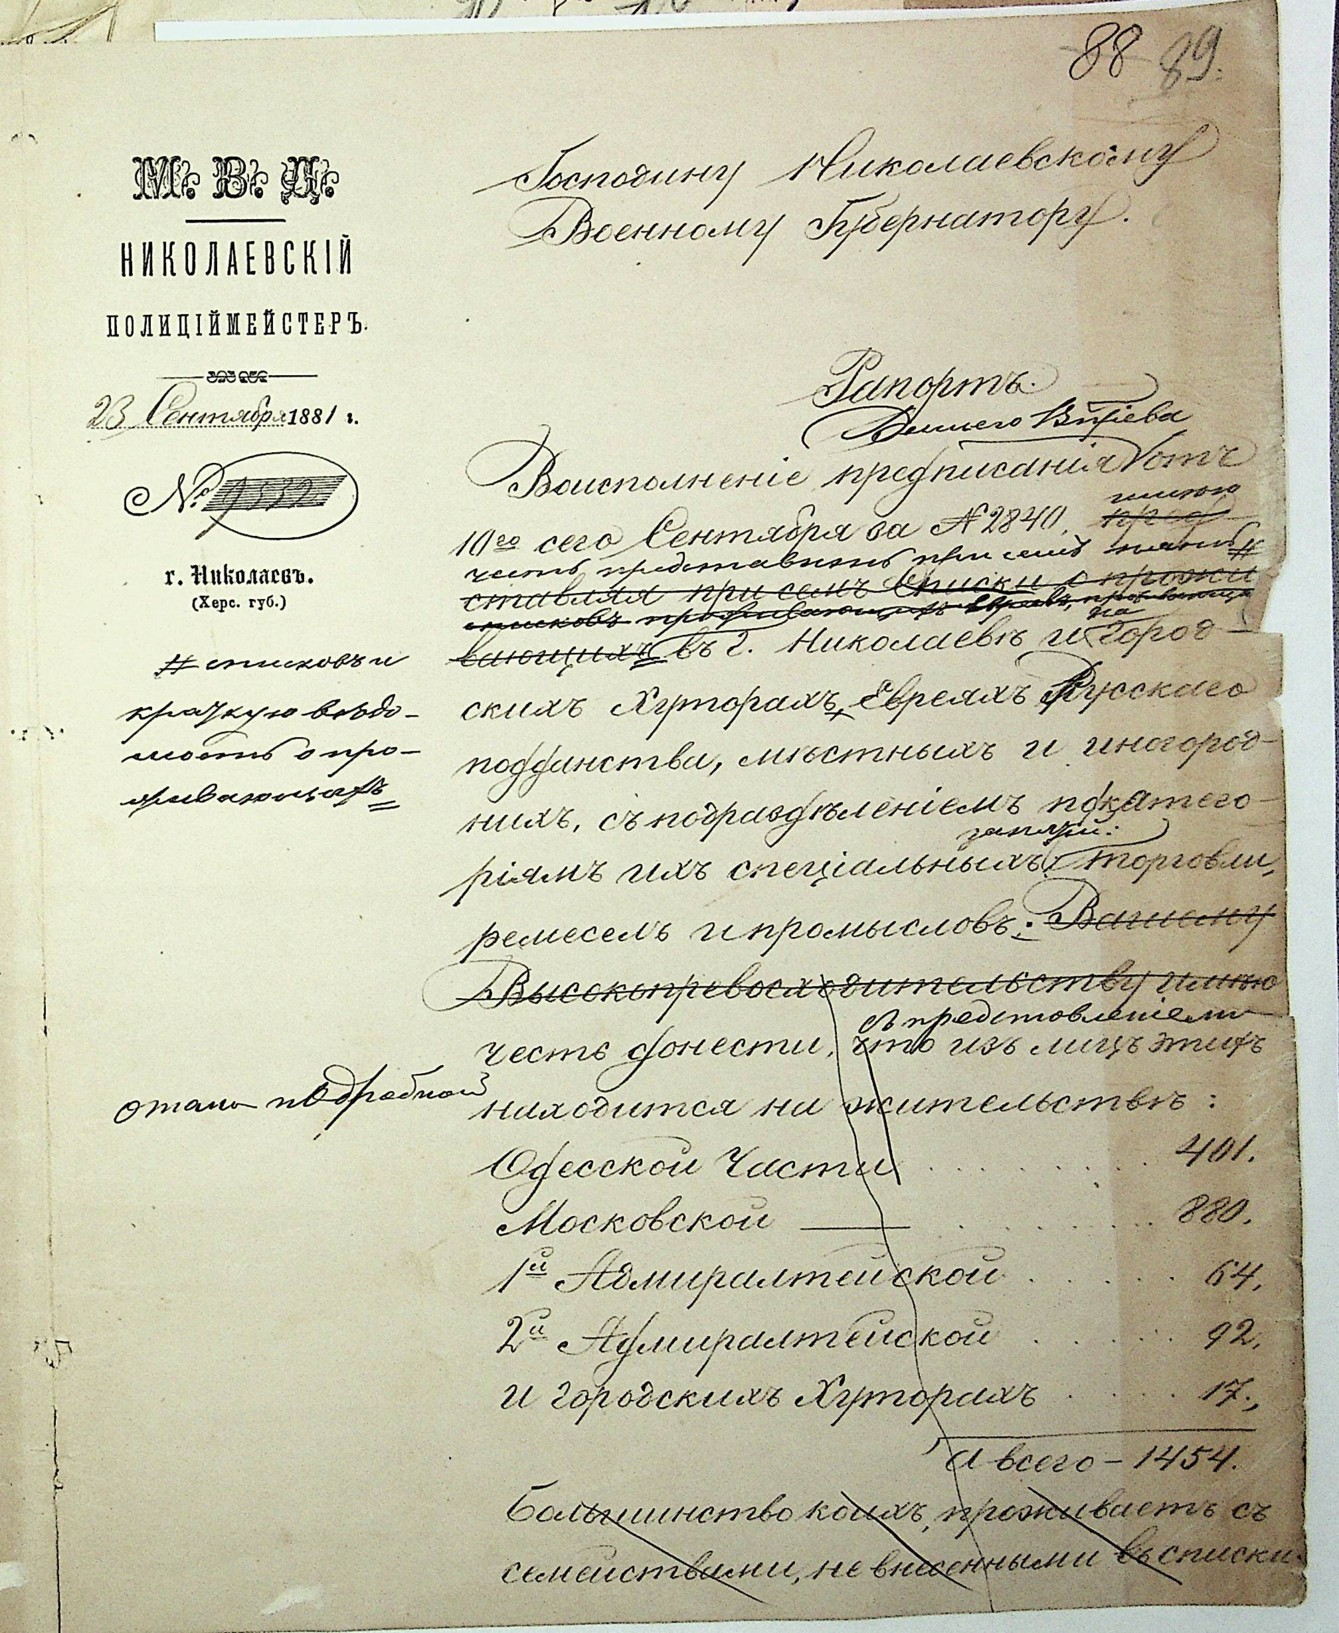 88 89.
М. В. Д.
НИКОЛАЕВСКІЙ
ПОЛИЦІЙМЕЙСТЕРЪ.
23 Сентября 1881 г.
№ 9332
г. Николаевъ.
(Херс. губ.)
# списковъ и
краткую вѣдо-
мость о про-
живающихъ
Господину Николаевскому
Военному Губернатору.
Рапортъ.
Вашего
Воисполненіе предписанія отъ
имѣю
10го сего Сентября за № 2840. пред
честь представить при семъ #
ставляя при семъ Списки о прожи
списковъ проживающихъ
на
вающихъ въ г. Николаевѣ и Город-
скихъ Хуторахъ, Евреяхъ Русскаго
подданства, мѣстныхъ и иногород-
нихъ, съ подраздѣленіемъ по катего-
занятій:
ріямъ ихъ спеціальныхъ торговли,
ремеселъ и промысловъ. Вашему
Высокопревосходительству имѣю
съ представленіемъ
честь донести, что изъ лицъ этихъ
находится на жительствѣ:
Одесской Части 401.
Московской — 880.
1й Адмиралтейской 64.
2й Адмиралтейской 92.
и городскихъ Хуторахъ 17.
А всего — 1454.
Большинство коихъ, проживаетъ съ
семействами, не внесенными въ списки